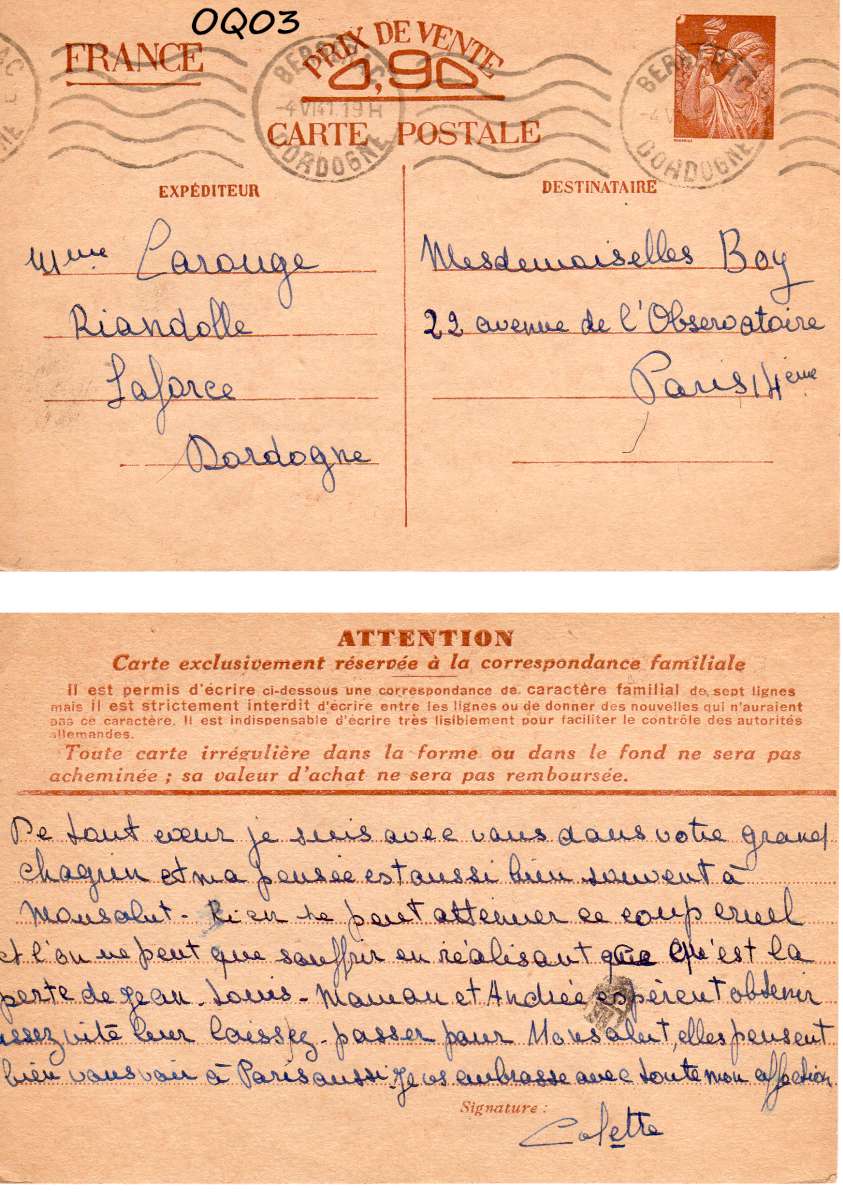 OQ03
FRANCE
PRIX DE VENTE
0,90
CARTE POSTALE
BERGERAC
-4 VI 41. 19H
DORDOGNE
BERGERAC
DORDOGNE
EXPÉDITEUR
DESTINATAIRE
Mme Carouge
Riandolle
Laforce
Dordogne
Mesdemoiselles Boy
22 avenue de l'Observatoire
Paris 14ème
ATTENTION
Carte exclusivement réservée à la correspondance familiale
Il est permis d'écrire ci-dessous une correspondance de caractère familial de sept lignes
mais il est strictement interdit d'écrire entre les lignes ou de donner des nouvelles qui n'auraient
pas ce caractère. Il est indispensable d'écrire très lisiblement pour faciliter le contrôle des autorités
allemandes.
Toute carte irrégulière dans la forme ou dans le fond ne sera pas
acheminée ; sa valeur d'achat ne sera pas remboursée.
De tout cœur je suis avec vous dans votre grand
chagrin et ma pensée est aussi bien souvent à
Monsalut - Rien ne peut attenuer ce coup cruel
et l'on ne peut que souffrir en réalisant qu'est la
perte de Jean-Louis - Maman et Andrée espèrent obtenir
assez vite leur laissez-passer pour Monsalut, elles pensent
bien vous voir à Paris aussi. Je vs embrasse avec toute mon affection
Signature :
Colette